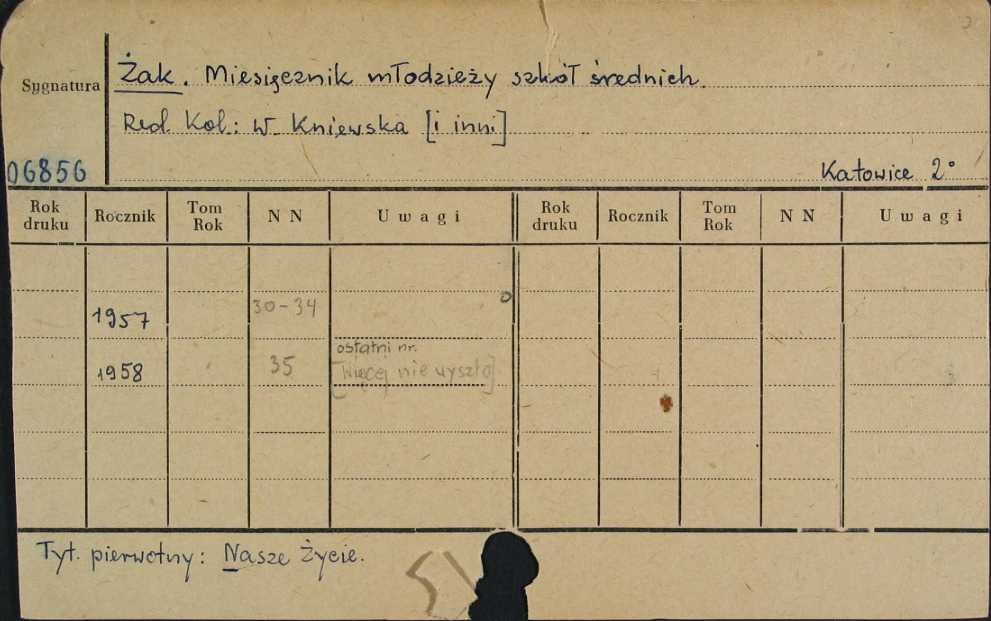 Sygnatura
Żak. Miesięcznik młodzieży szkół średnich.
Red. Kol.: W. Kniewska [i inni]
06856
Katowice 2°
Rok druku Rocznik Tom Rok N N Uwagi Rok druku Rocznik Tom Rok N N Uwagi
1957 30-34
ostatni nr.
1958 35 [Więcej nie wyszło]
Tyt. pierwotny: Nasze Życie.